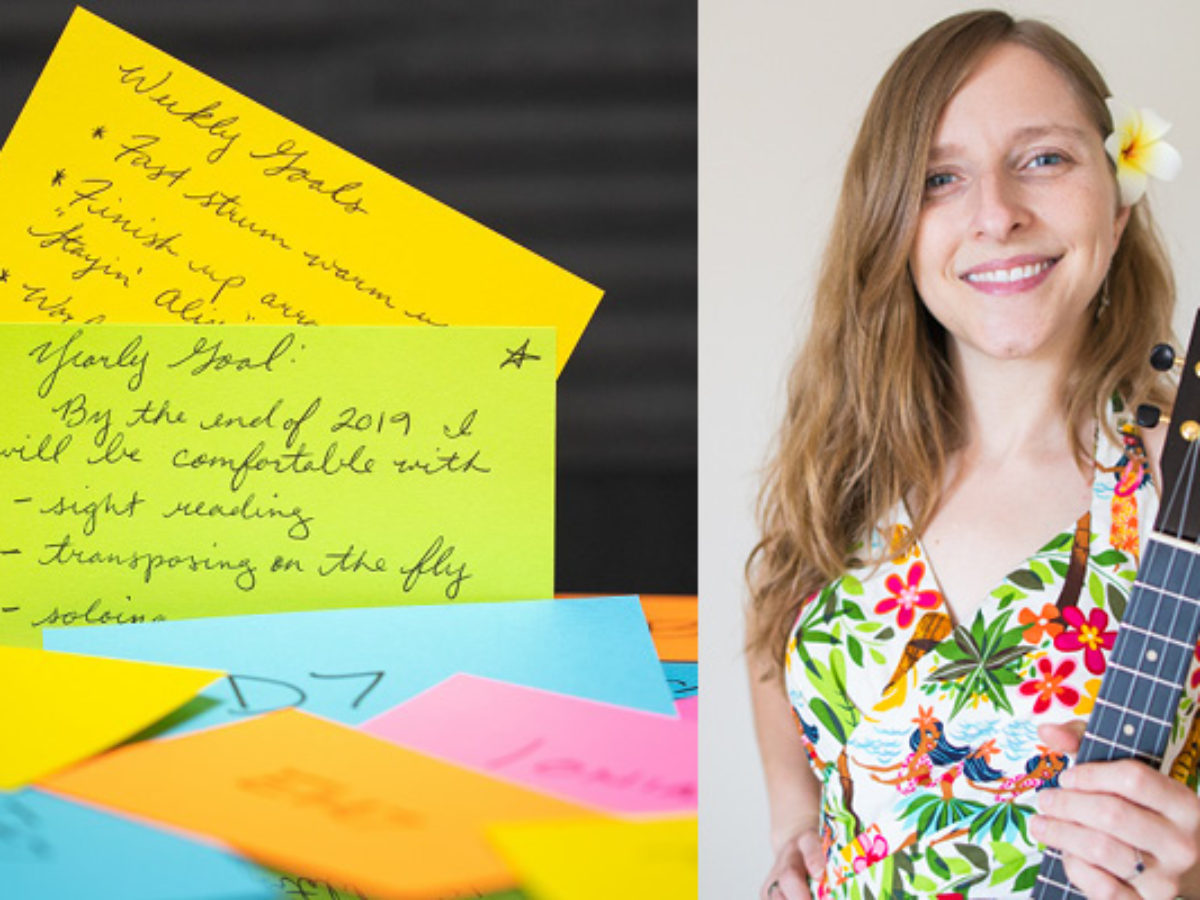 Weekly Goals
* Fast strum warm
* Finish up
"Stayin' Alive"
*
Yearly Goal:
By the end of 2019 I
will be comfortable with
- sight reading
- transposing on the fly
- soloing
D7